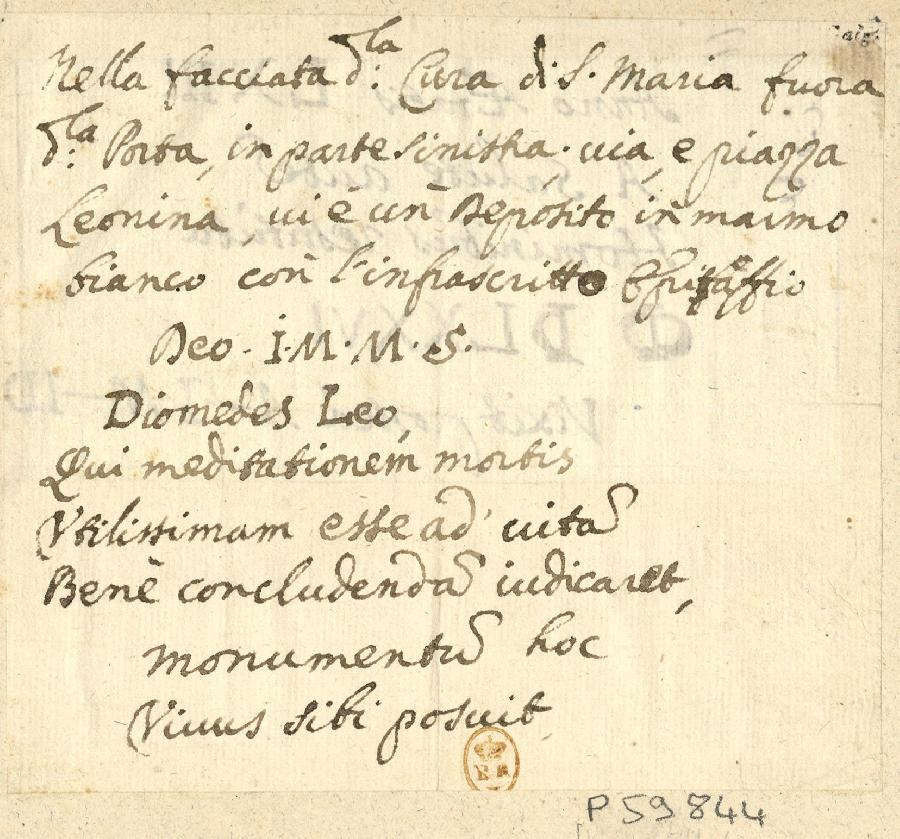 Nella facciata d:la Cura di S. Maria fuora
d:la Porta, in parte sinistra, via, e piazza
Leonina, vi è un Deposito in marmo
bianco con l'infrascritto Epitaffio
Deo. I. M. M. S.
Diomedes Leo,
Qui meditationem mortis
Vtilissimam esse ad uitã
Benè concludendã iudicaret,
monumentũ hoc
Viuus sibi posuit
B R
P 59844